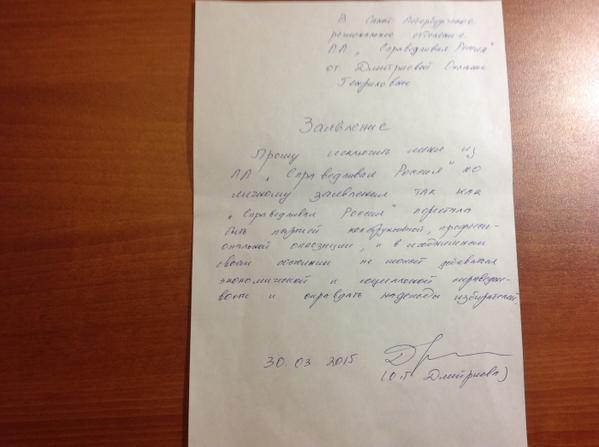 В Санкт-Петербургское
региональное отделение
ПП „Справедливая Россия"
от Дмитриевой Оксаны
Генриховны
Заявление
Прошу исключить меня из
ПП „Справедливая Россия" по
личному заявлению так как
„Справедливая Россия" перестала
быть партией конструктивной, професси-
ональной оппозиции, и в
своем не может добиваться
экономической и социальной
и оправдать надежды избирателей.
30.03 2015
(О.Г Дмитриева)